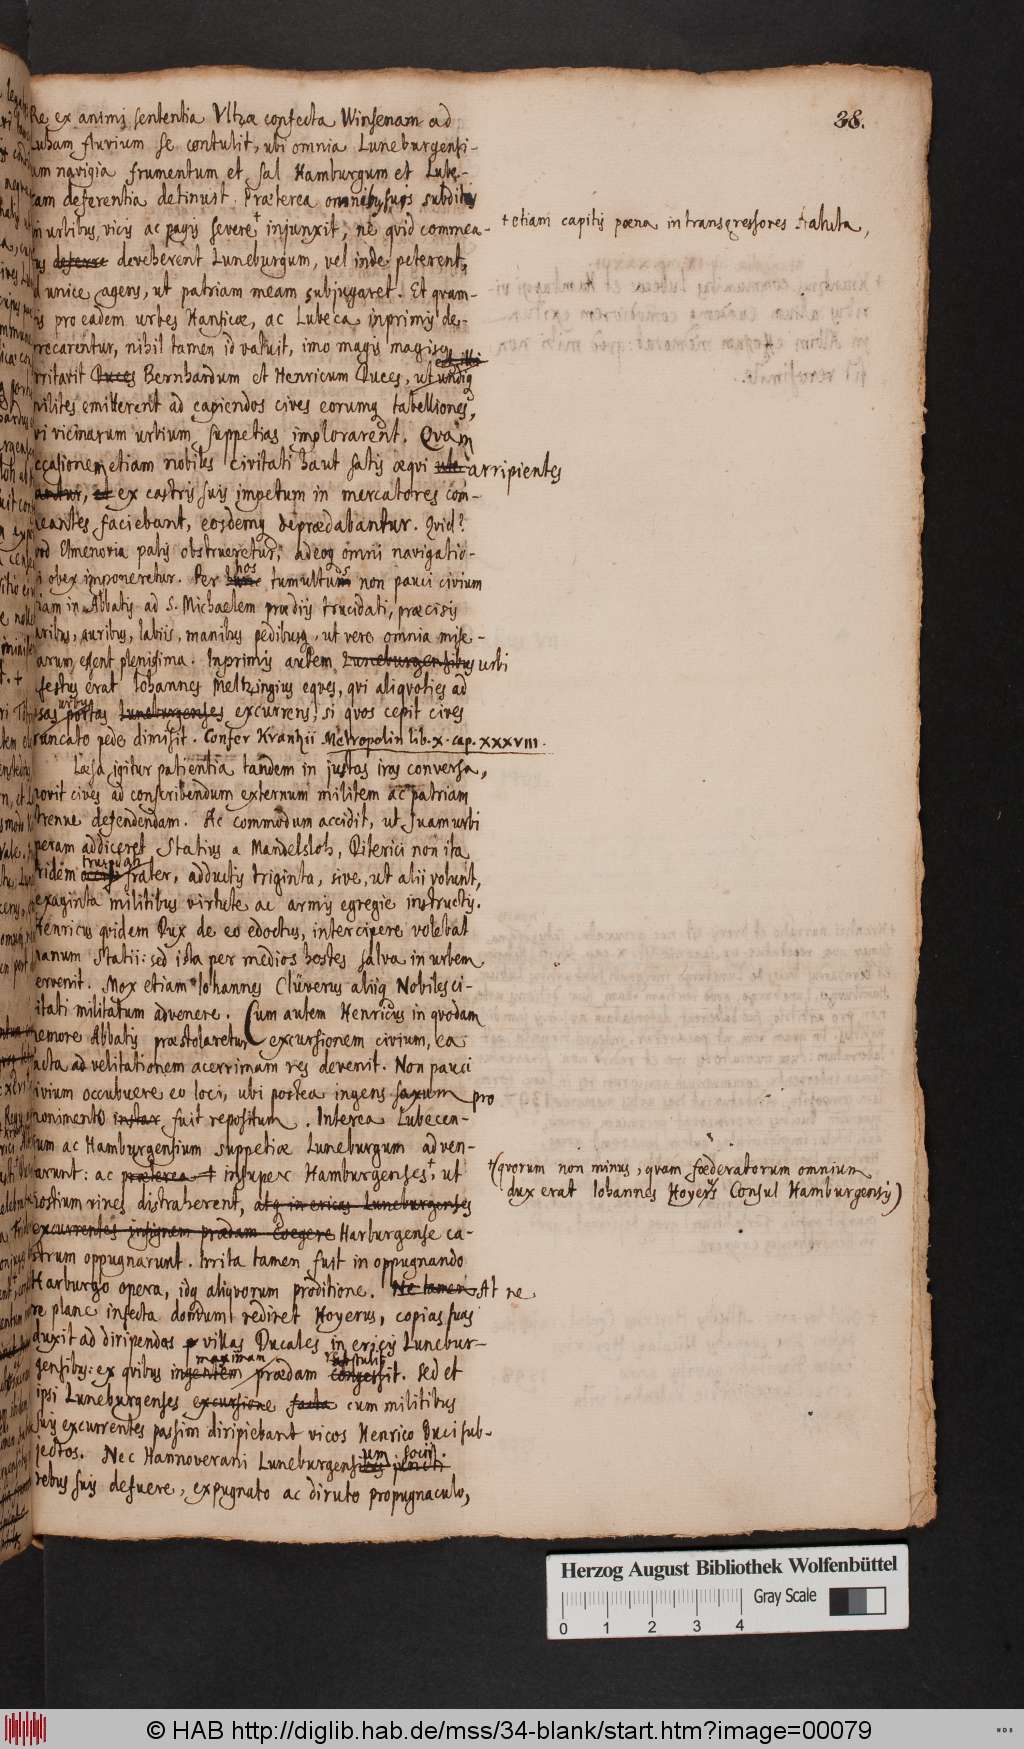 38.
Re ex animi sententia Ultzæ confecta Winsenam ad
Luham fluvium se contulit, ubi omnia Luneburgensi-
um navigia frumentum et sal Hamburgum et Lube-
cam deferentia detinuit. Præterea omnibus suis subditis
in urbibus, vicis ac pagis severe + injunxit, ne qvid commea-
+ etiam capitis pœna in transgressores statuta,
tus deferre deveherent Luneburgum, vel inde peterent,
id unice agens, ut patriam meam subjugaret. Et qvam-
vis pro eadem urbes Hansicæ, ac Lubeca inprimis de-
precarentur, nihil tamen id valuit, imo magis magisq
irritavit Duces Bernhardum et Henricum Duces, ut undiq
milites emitterent ad capiendos cives eorumq tabelliones,
qvi vicinarum urbium suppetias implorarent. Qvam
occasionem etiam nobiles civitati haut satis æqvi arripientes
et ex castris suis impetum in mercatores com-
meantes faciebant, eosdemq deprædabantur. Qvid?
qvod Elmenovia palis obstrueretur, adeoq omni navigatio-
ni obex imponeretur. Per hos tumultus non pauci civium
jam in Abbatis ad S. Michaelem prædiis trucidati, præcisis
naribus, auribus, labiis, manibus pedibusq, ut vere omnia mise-
rarum essent plenissima. Inprimis autem Luneburgensibus urbi
infestus erat Iohannes Meltzingius eqves, qvi aliqvoties ad
ipsas urbis portas Luneburgenses excurrens, si qvos cepit cives
truncato pede dimisit. Confer Krantzii Metropolin lib. x. cap. XXXVIII.
Læsa igitur patientia tandem in justas iras conversa,
movit cives ad conscribendum externum militem ac patriam
strenue defendendam. Ac commodum accidit, ut suam urbi
operam addiceret Statius a Mandelsloh, Diterici non ita
pridem trucidati frater, adductis triginta, sive, ut alii volunt,
sexaginta militibus virtute ac armis egregie instructis.
Henricus qvidem Dux de eo edoctus, intercipere volebat
manum Statii: sed ista per medios hostes salva in urbem
pervenit. Mox etiam Iohannes Clüverus aliiq Nobiles ci-
vitati militatum advenere. Cum autem Henricus in qvodam
nemore Abbatis præstolaretur excursionem civium, ea
facta ad velitationem acerrimam res devenit. Non pauci
civium occubuere eo loci, ubi postea ingens saxum pro
monimento instar fuit repositum. Interea Lubecen-
sium ac Hamburgensium suppetiæ Luneburgum adven-
tarunt: ac præterea + insuper Hamburgenses, + ut
+ (qvorum non minus, qvam fœderatorum omnium
dux erat Iohannes Hoyerus Consul Hamburgensis)
hostium vires distraherent, atq in ericis Luneburgenses
excurrentes insignem prædam coegere Harburgense ca-
strum oppugnarunt. Irrita tamen fuit in oppugnando
Harburgo opera, idq aliqvorum proditione. Ne tamen At ne
re plane infecta domum rediret Hoyerus, copias suas
duxit ad diripendas villas Ducales in ericis Lunebur-
gensibus: ex qvibus ingentem maximam prædam congessit. Sed et
ipsi Luneburgenses excursione facta cum militibus
suis excurrentes passim diripiebant vicos Henrico Duci sub-
jectos. Nec Hannoverani Luneburgensium socii
rebus suis defuere, expugnato ac diruto propugnaculo,
Herzog August Bibliothek Wolfenbüttel
Gray Scale
0 1 2 3 4
© HAB http://diglib.hab.de/mss/34-blank/start.htm?image=00079